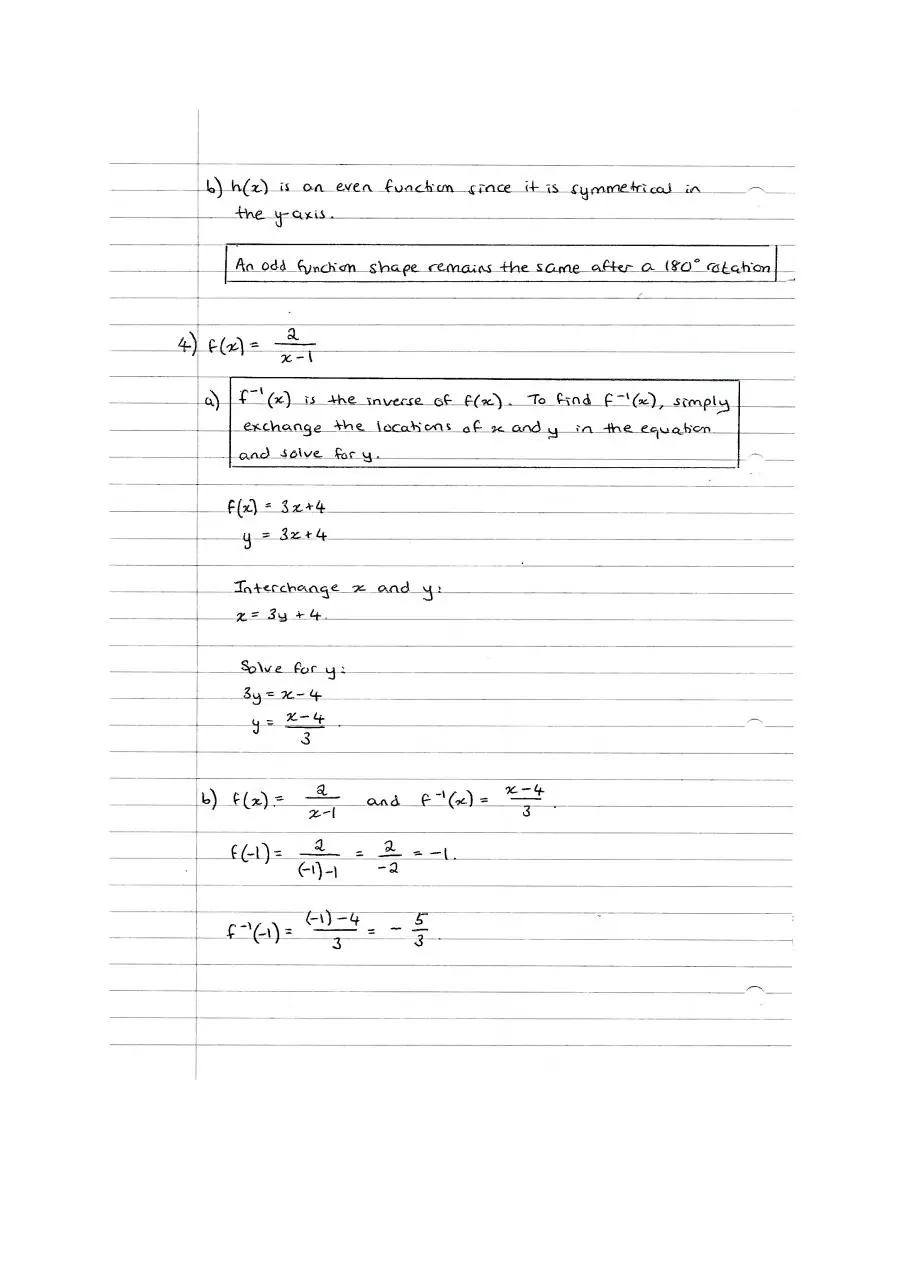 b) h(x) is an even function since it is symmetrical in
the y-axis.
An odd function shape remains the same after a 180° rotation
4) f(x) = 2/(x-1)
a) f⁻¹(x) is the inverse of f(x). To find f⁻¹(x), simply
exchange the locations of x and y in the equation
and solve for y.
f(x) = 3x+4
y = 3x+4
Interchange x and y:
x = 3y + 4.
Solve for y:
3y = x-4
y = (x-4)/3.
b) f(x) = 2/(x-1) and f⁻¹(x) = (x-4)/3.
f(-1) = 2/((-1)-1) = 2/-2 = -1.
f⁻¹(-1) = ((-1)-4)/3 = -5/3.